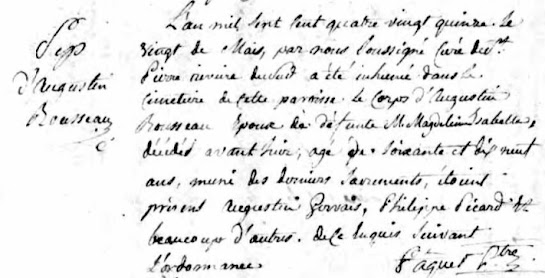 L'an mil sept cent quatre vingt quinze. le
Sep
d'Augustin
Rousseau
vingt de Mais, par nous Soussigné Curé de St.
Pierre riviere du Sud a été inhumé dans le
cimetiere de cette paroisse le Corps d'Augustin
Rousseau Epoux de défunte M. Magdelein Isabelle,
décédé avant hier, agé de Soixante et dix neuf
ans, muni des derniers Sacrements, étoient
présens Augustin Gervais, Philippe Picard &
beaucoup d'autres. de ce enquis Suivant
L'ordonnance
Paquet Ptre